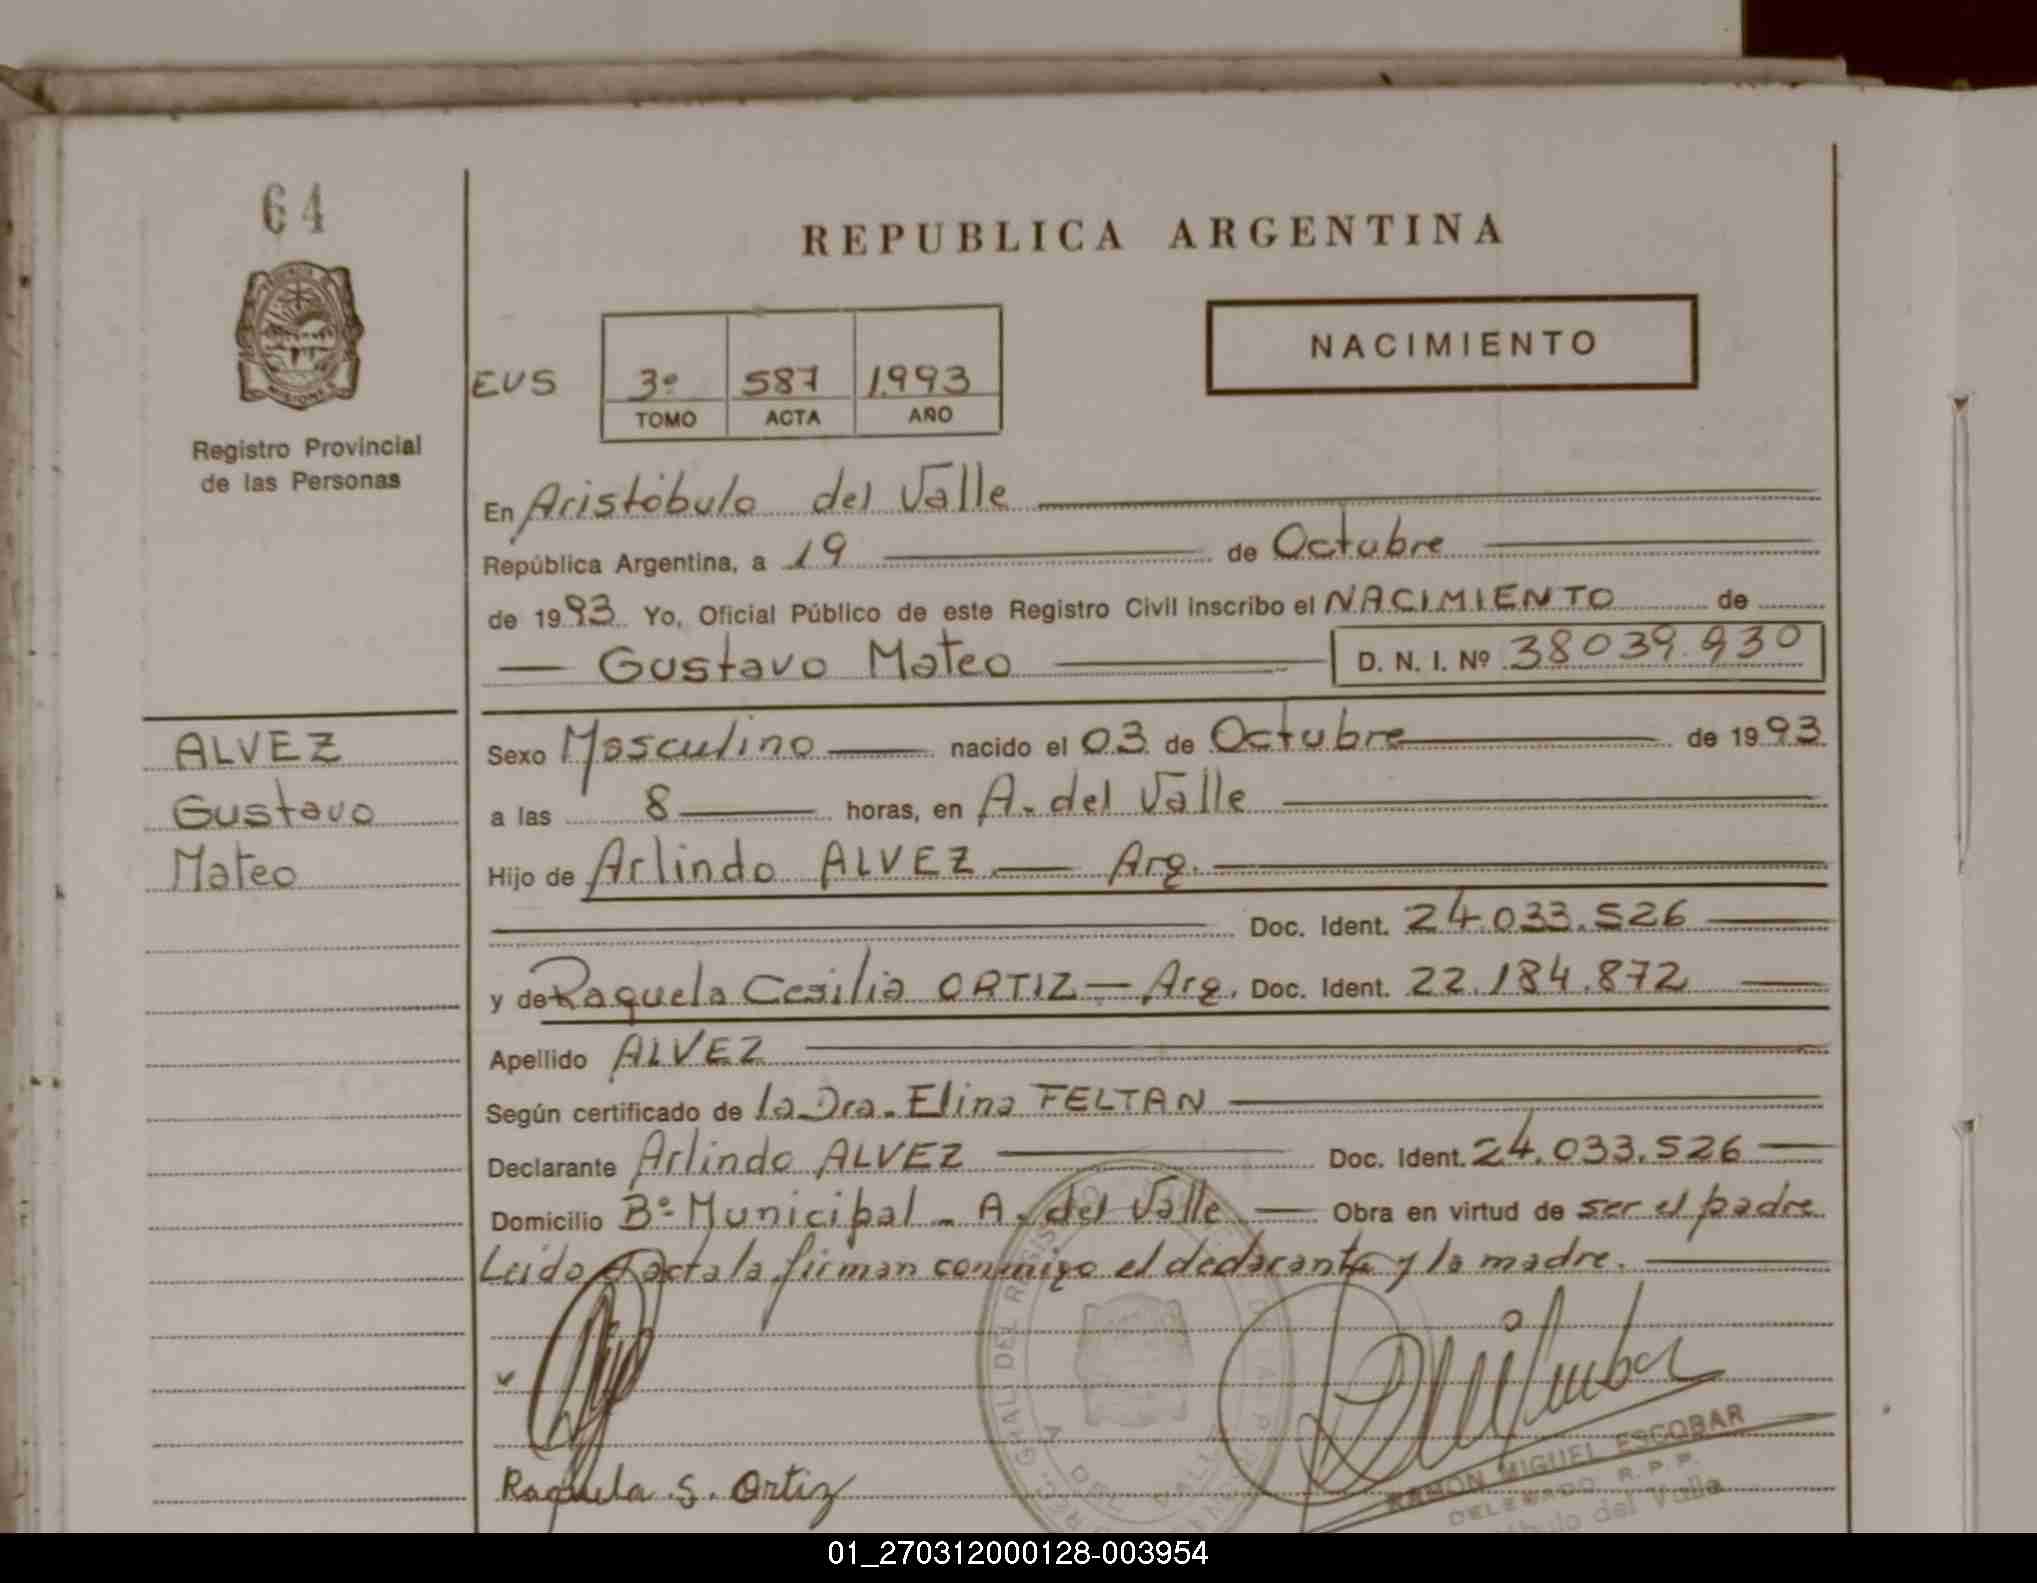 64
REPUBLICA ARGENTINA
MISIONES
Registro Provincial
de las Personas
EVS
3º 587 1.993
TOMO ACTA AÑO
NACIMIENTO
En Aristóbulo del Valle
República Argentina, a 19 de Octubre
de 1993 Yo, Oficial Público de este Registro Civil inscribo el NACIMIENTO de
Gustavo Mateo D. N. I. Nº 38039.930
ALVEZ
Gustavo
Mateo
Sexo Masculino nacido el 03 de Octubre de 1993
a las 8 horas, en A. del Valle
Hijo de Arlindo ALVEZ Arg.
Doc. Ident. 24.033.526
y de Raquela Cesilia ORTIZ - Arg. Doc. Ident. 22.184.872
Apellido ALVEZ
Según certificado de la Dra. Elina FELTAN
Declarante Arlindo ALVEZ Doc. Ident. 24.033.526
Domicilio Bº Municipal - A. del Valle Obra en virtud de ser el padre
Leida acta la firman conmigo el declarante y la madre.
Raquela S. Ortiz
RAMON MIGUEL ESCOBAR
DELEGADO R.P.P.
del Valle
01_270312000128-003954